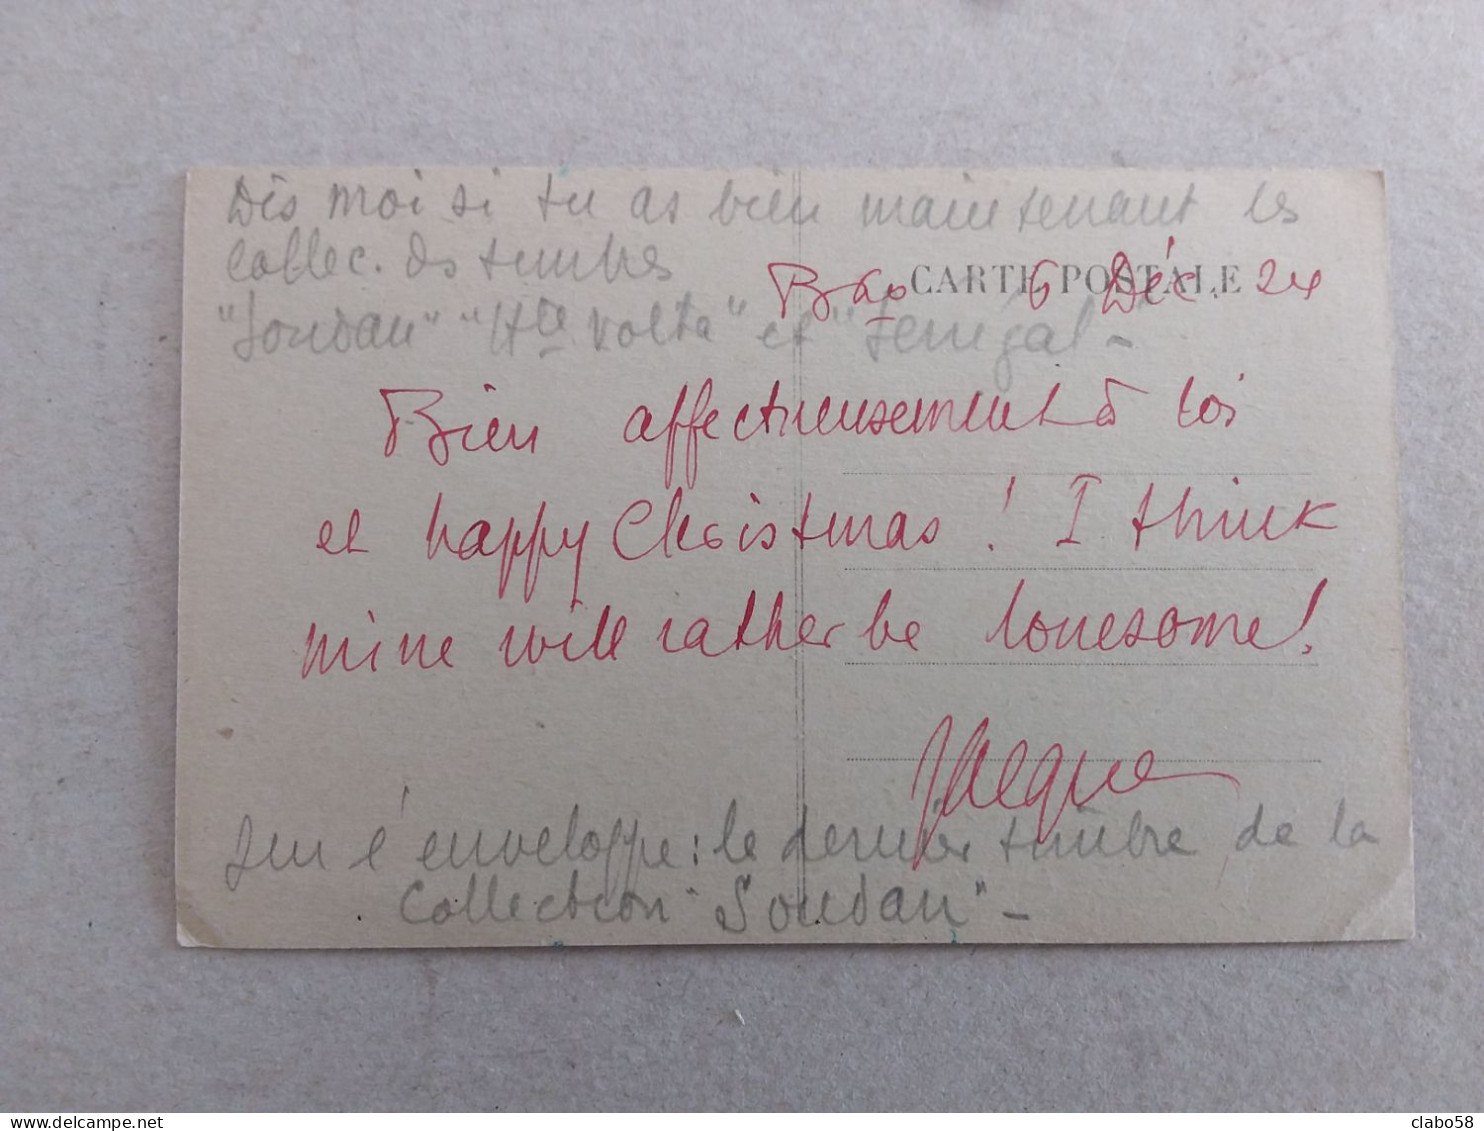 Dis moi si tu as bien maintenant les
collec. ds timbres
CARTE POSTALE
6 Déc. 24
"Soudan" "Hte Volta" et "Sénégal" -
Bien affectueusement à toi
et happy Christmas ! I think
mine will rather be lonesome !
Jacques
sur l'enveloppe : le dernier timbre de la
collection "Soudan" -
clabo58